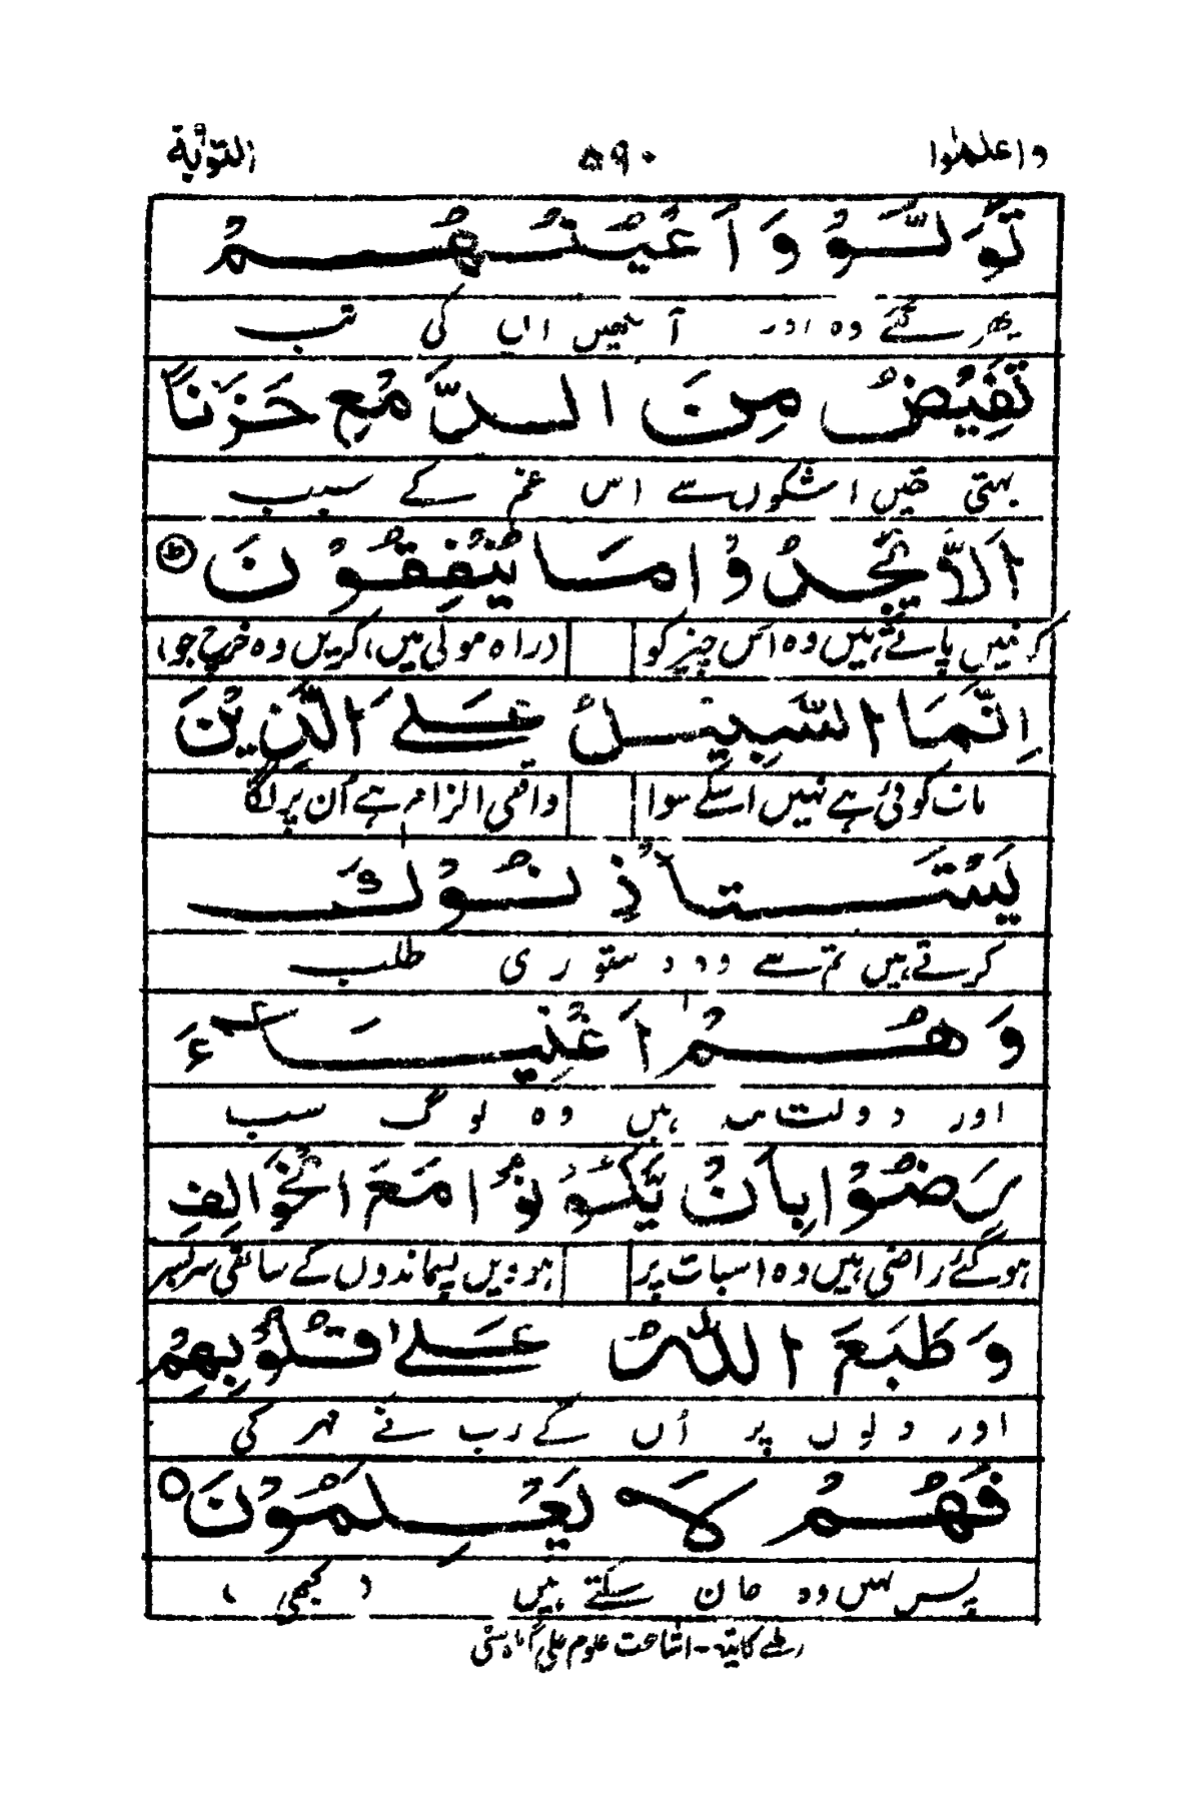 واعلموا ۵۹۰ التوبة
تَوَلَّوْا وَّاَعْيُنُهُمْ
پھر گئے وہ اور آنکھیں اُن کی تب
تَفِيْضُ مِنَ الدَّمْعِ حَزَنًا
بہتی تھیں اشکوں سے اس غم کے سبب
اَلَّا يَجِدُوْا مَا يُنْفِقُوْنَ ؕ
کہ نہیں پاتے ہیں وہ اس چیز کو (راہ مولیٰ میں، کریں وہ خرچ جو)
اِنَّمَا السَّبِيْلُ عَلَى الَّذِيْنَ
بات کوئی ہے نہیں اسکے سوا واقعی الزام ہے اُن پر لگا
يَسْتَاْذِنُوْنَكَ
کرتے ہیں تم سے وہ دستوری طلب
وَهُمْ اَغْنِيَآءُ
اور دولت ہیں وہ لوگ سب
رَضُوْا بِاَنْ يَّكُوْنُوْا مَعَ الْخَوَالِفِ
ہو گئے راضی ہیں وہ اسبات پر ہوویں پسماندوں کے ساتھی سربسر
وَطَبَعَ اللّٰهُ عَلٰى قُلُوْبِهِمْ
اور دلوں پر اُن کے رب نے مہر کی
فَهُمْ لَا يَعْلَمُوْنَ ○
پس نہیں وہ جان سکتے ہیں (کبھی)
اشاعت علوم علی گڑھ